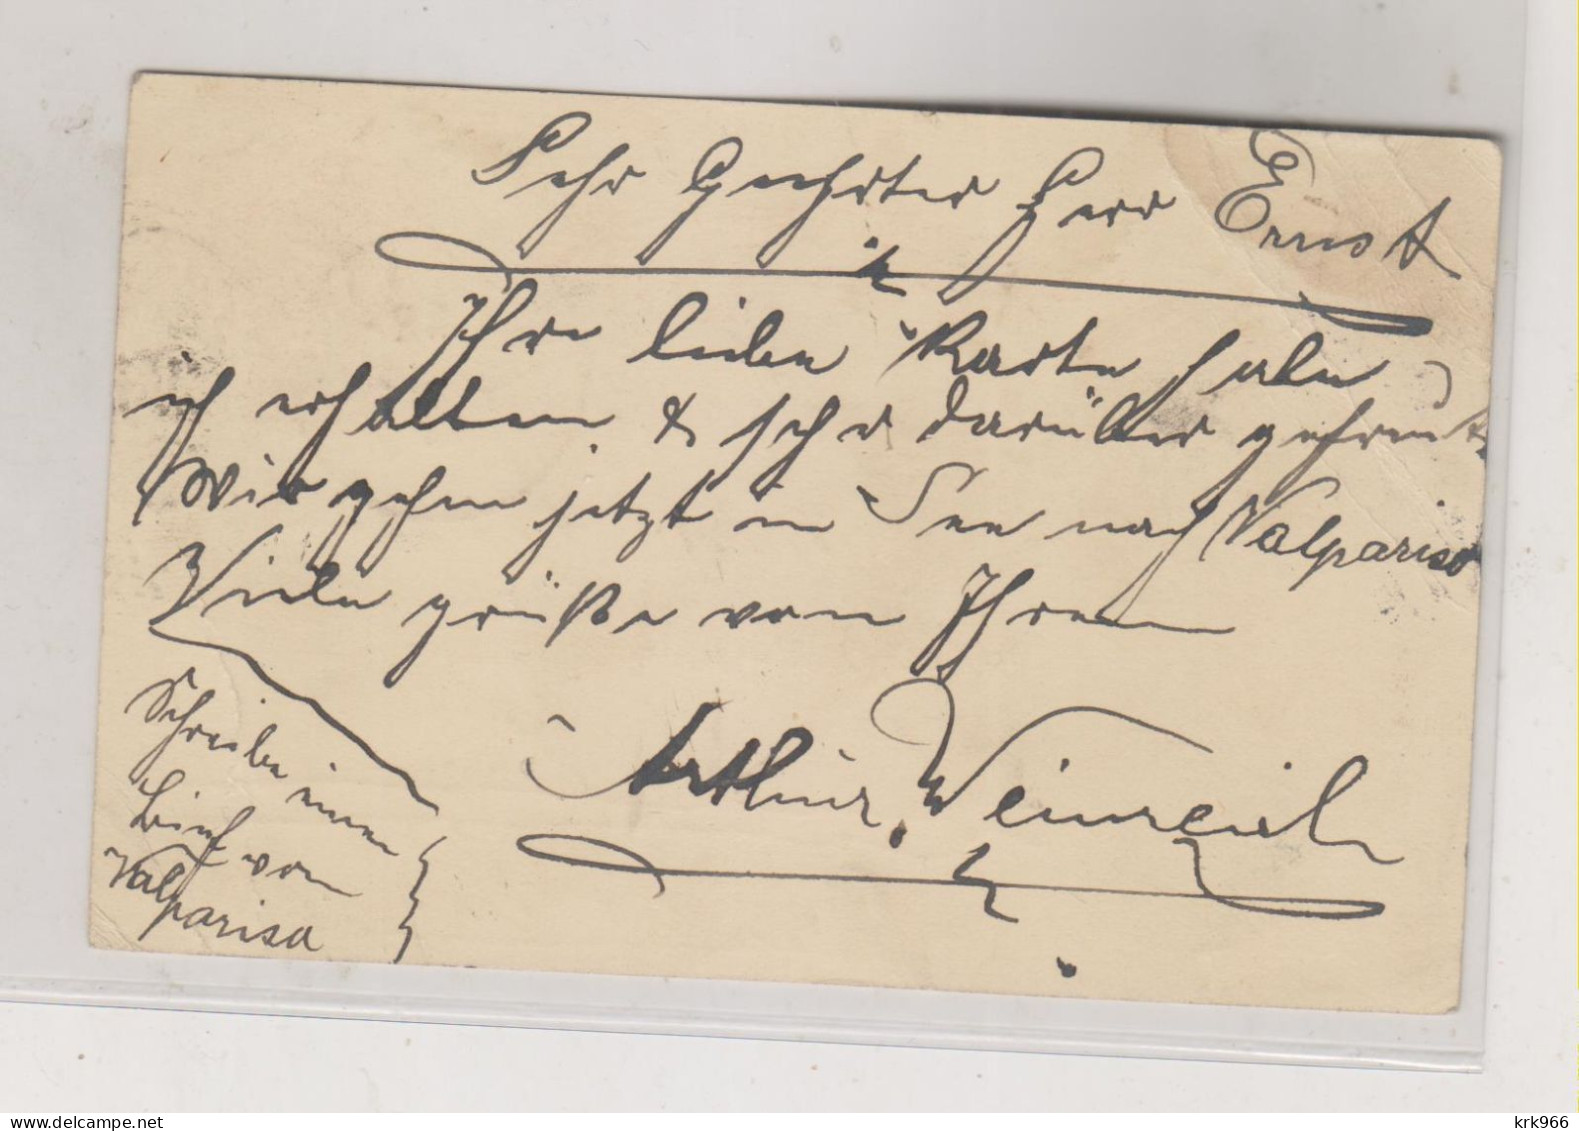 Sehr Geehrter Herr Ernst
Ihre liebe Karte habe
ich erhalten & sehr darüber gefreut
Wir gehen jetzt in See nach Valpariso
Viele grüße von Ihrem
Arthur
Schreibe einen
Brief von
Valpariso
www.delcampe.net
krk966